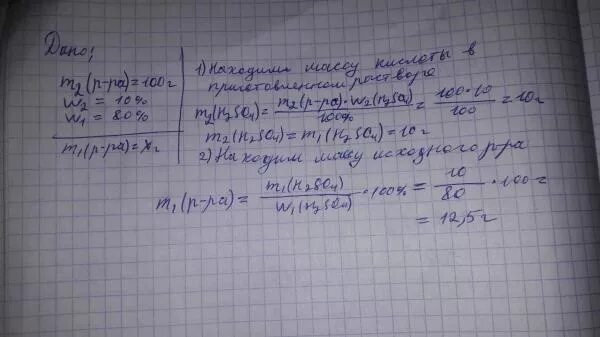 Дано:
m₂(р-ра) = 100г
W₂ = 10%
W₁ = 80%
m₁(р-ра) = Xг
1) Находим массу кислоты в
приготовленном растворе
m₂(H₂SO₄) = m₂(р-ра)·W₂(H₂SO₄) / 100% = 100·10 / 100 = 10г
m₂(H₂SO₄) = m₁(H₂SO₄) = 10г
2) Находим массу исходного р-ра
m₁(р-ра) = m₁(H₂SO₄) / W₁(H₂SO₄) · 100% = 10 / 80 · 100 =
= 12,5г